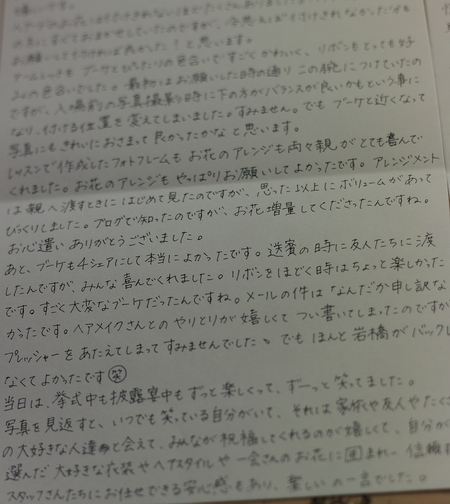 嬉しいです。
ヘアーのお花は
の方にすべておまかせしていたのですが、
お願い よかった!と思います。
ブーケとぴったりの色合いですごくかわいく、リボンもとっても好
みの色合いでした。最初はお願いした時の通りこの腕につけていたの
ですが、入場前の写真撮影の時に下の方がバランスが良いかもという事に
なり、付ける位置を変えてしまいました。すみません。でもブーケと近くなって
写真にもきれいにおさまって良かったかなと思います。
レッスンで作成したフォトフレームもお花のアレンジも両々親がとても喜んで
くれました。お花のアレンジもやっぱりお願いしてよかったです。アレンジメント
は親へ渡すときにはじめて見たのですが、思った以上にボリュームがあって
びっくりしました。ブログで知ったのですが、お花増量してくださったんですね。
お心遣いありがとうございました。
あと、ブーケも4シェアにして本当によかったです。送賓の時に友人たちに渡
したんですが、みんな喜んでくれました。リボンをほどく時はちょっと楽しかった
です。すごく大変なブーケだったんですね。メールの件はなんだか申し訳な
かったです。ヘアメイクさんとのやりとりが嬉しくてつい書いてしまったのですが
プレッシャーをあたえてしまってすみませんでした。でもほんと岩橋がバックし
なくてよかったです笑
当日は、挙式中も披露宴中もずっと楽しくって、ずーっと笑ってました。
写真を見返すと、いつでも笑っている自分がいて、それは家族や友人やたくさ
の大好きな人達と会えて、みんなが祝福してくれるのが嬉しくて、自分が
選んだ大好きな衣装やヘアスタイルや一会さんのお花に囲まれ、信頼
スタッフさんたちにお任せできる安心感もあり、楽しいの一言でした。